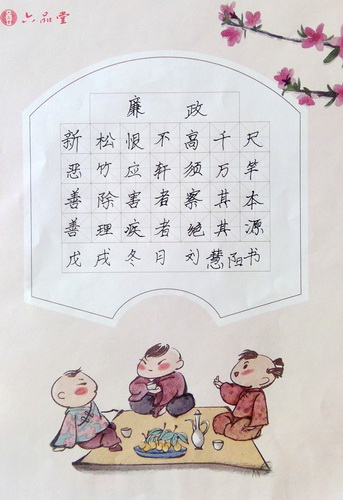 六品堂
廉政
新松恨不高千尺
恶竹应斩须万竿
善除害者察其本
善理疾者绝其源
戊戌冬月刘慧阳书